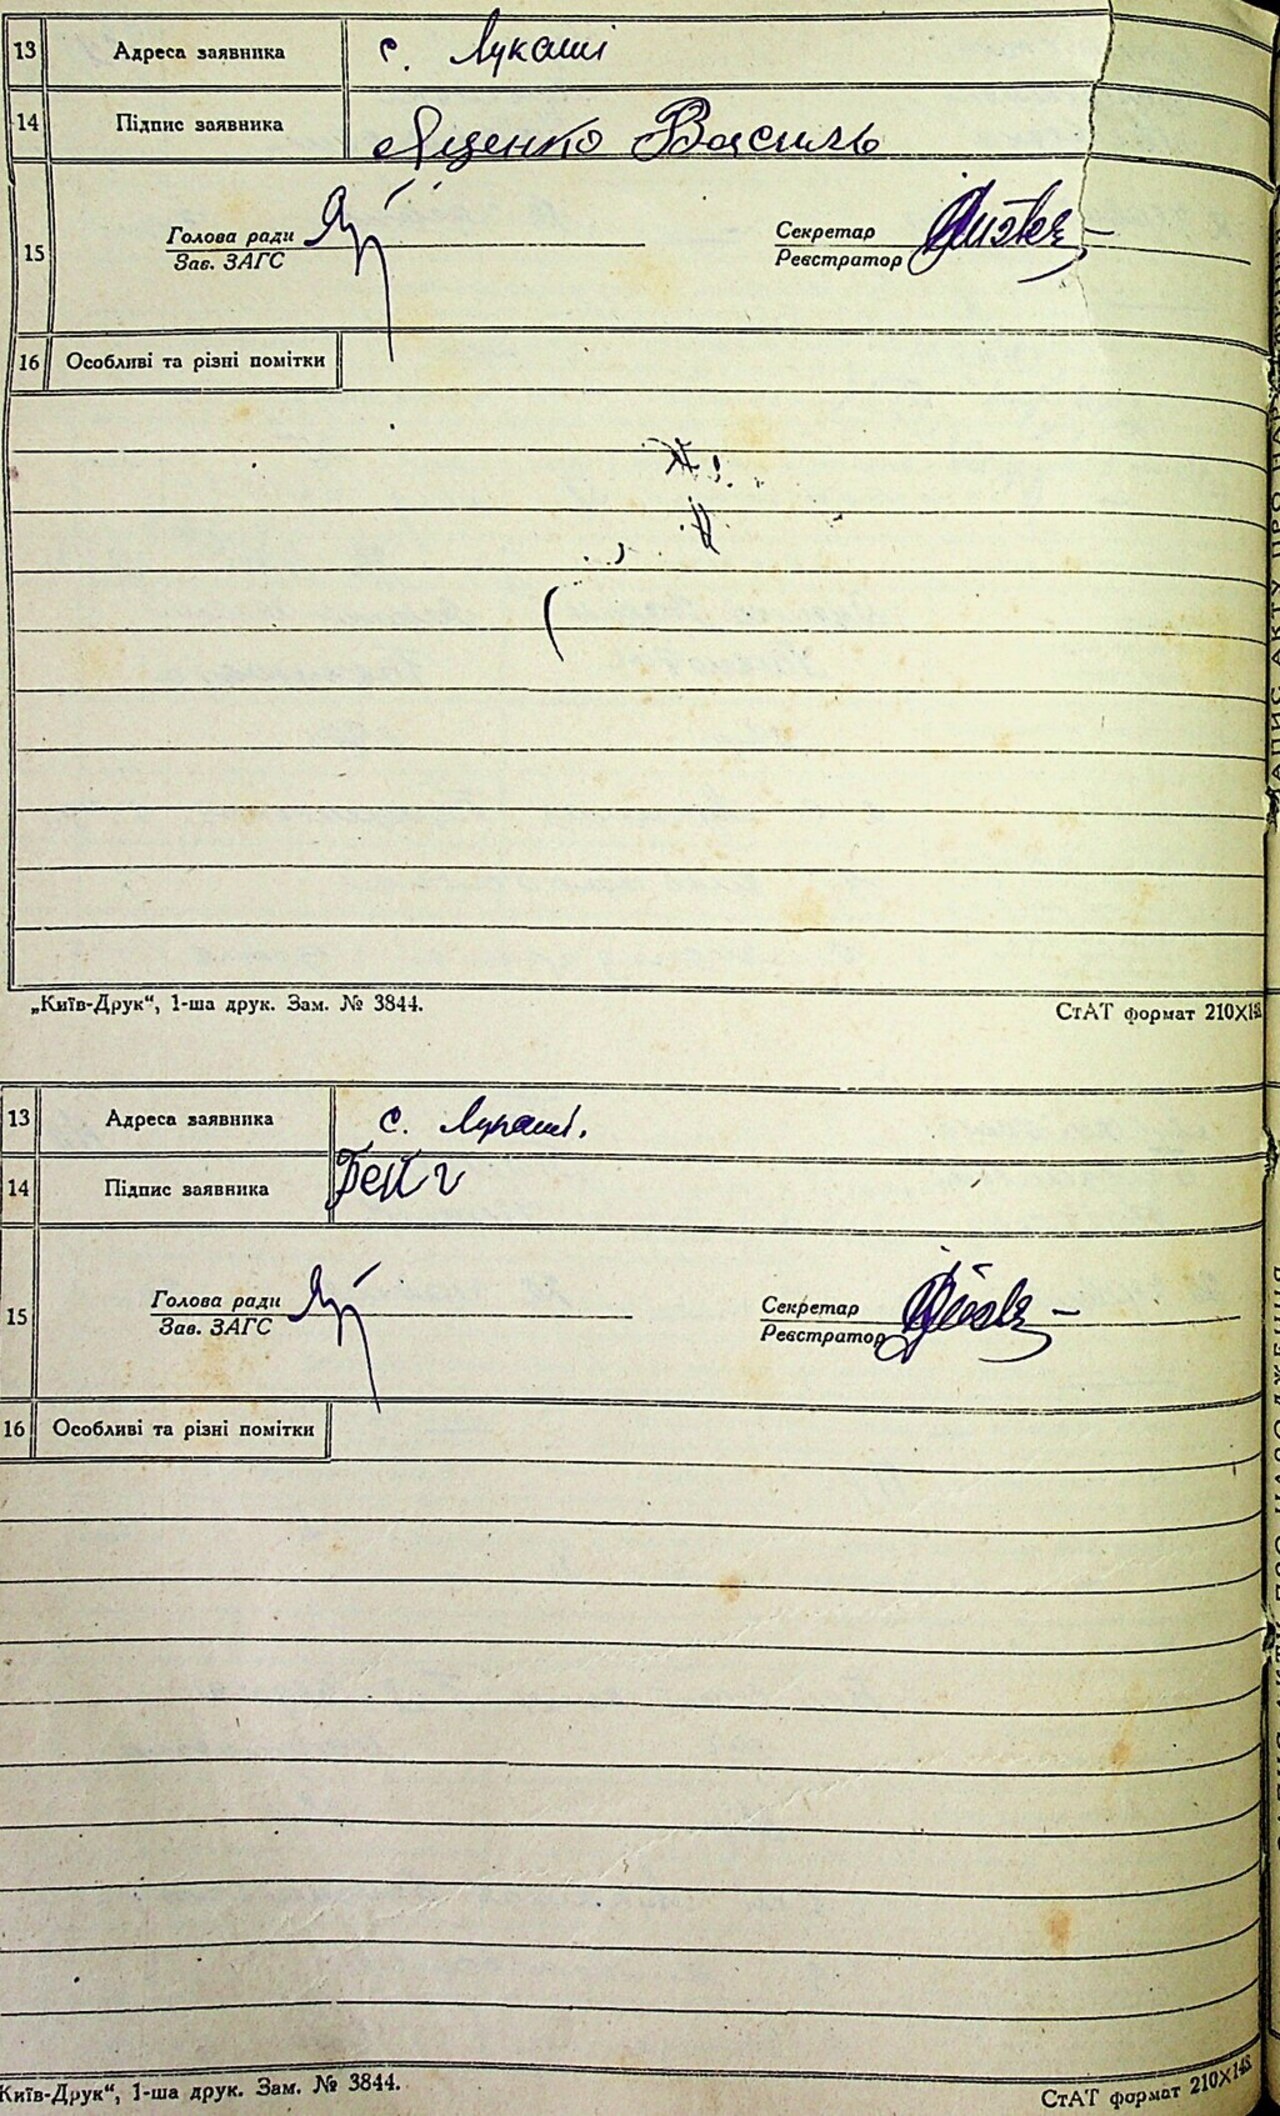 13 Адреса заявника с. Лукаші
14 Підпис заявника Яценко Василь
15 Голова ради Секретар
Зав. ЗАГС Реєстратор
16 Особливі та різні помітки
„Київ-Друк“, 1-ша друк. Зам. № 3844. СтАТ формат 210X148
13 Адреса заявника с. Лукаші.
14 Підпис заявника
15 Голова ради Секретар
Зав. ЗАГС Реєстратор
16 Особливі та різні помітки
Київ-Друк“, 1-ша друк. Зам. № 3844. СтАТ формат 210X148